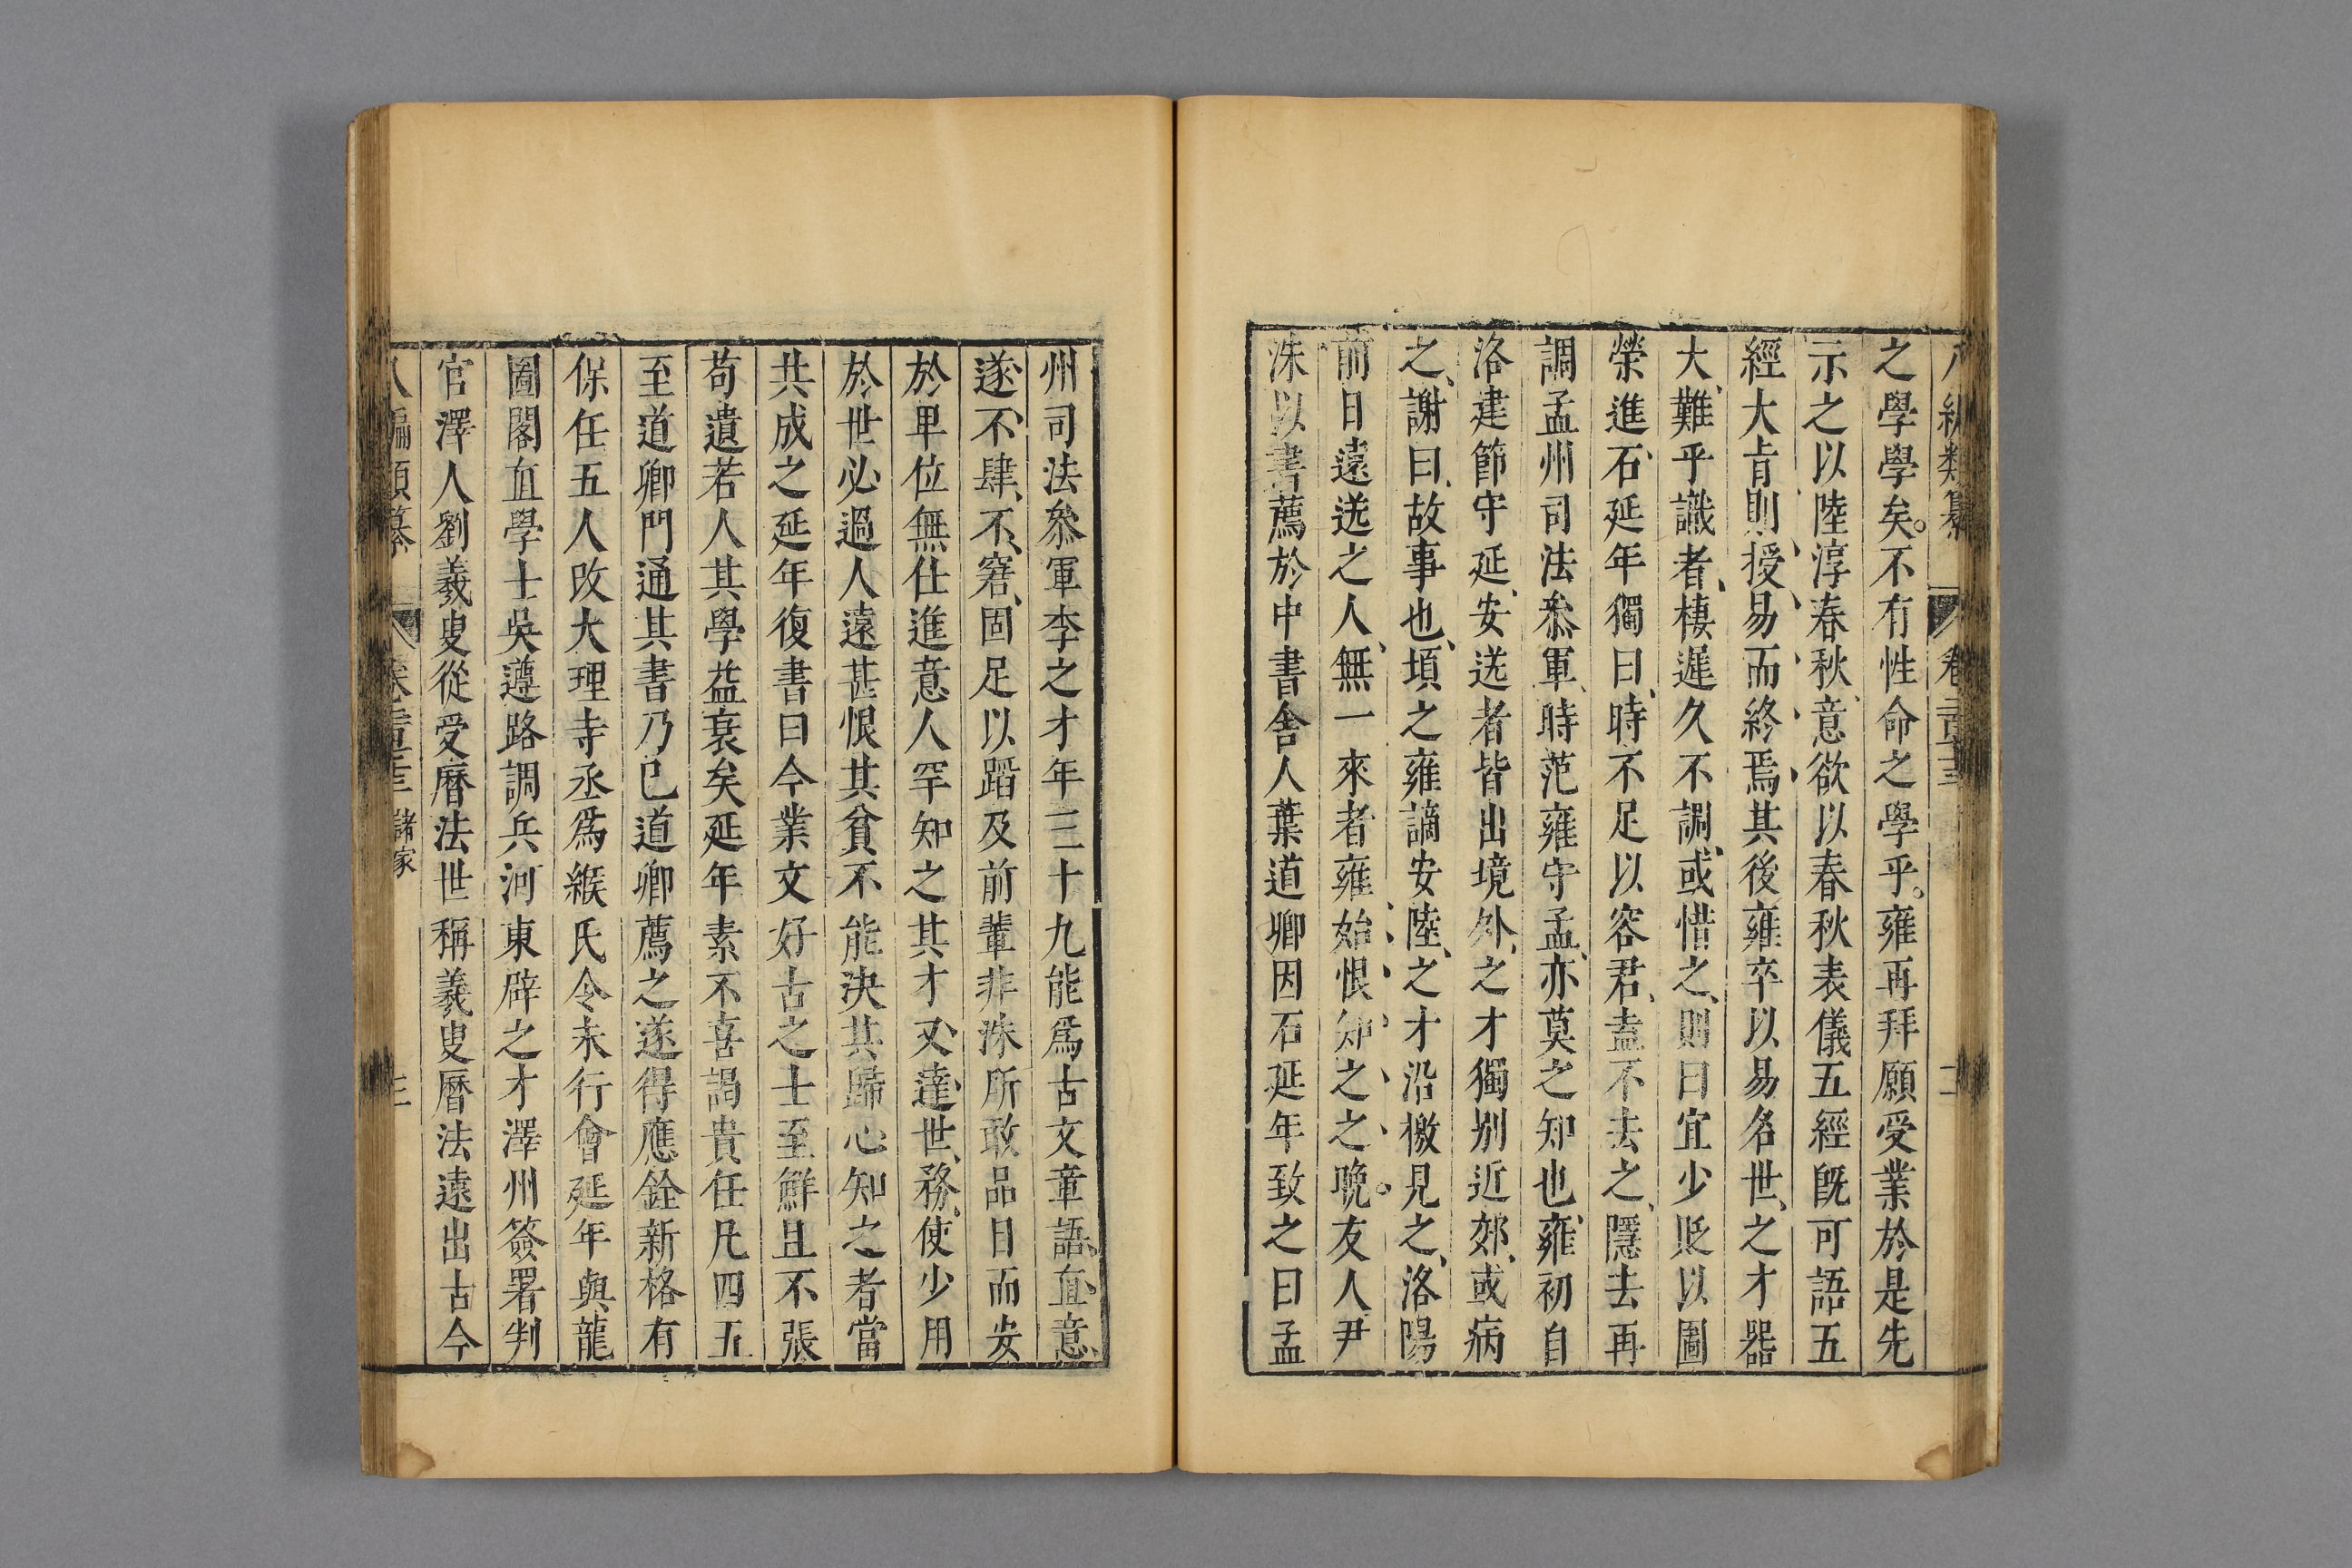 之學學矣。不有性命之學乎。雍再拜願受業於是先
示之以陸淳春秋、意欲以春秋表儀五經旣可語五
經大㫖則、授、易、而、終、焉、其後雍卒以易名世、之才器
大、難乎識者、棲遲久不調、或惜之、則曰宜少貶以圖
榮進石、延年獨曰、時不足以容君、盍不去之、隱去再
調孟州司法叅軍、時范雍守孟、亦莫之知也、雍初自
洛建節守延、安送者皆出境外、之才獨别近郊、或病
之、謝曰、故事也、頃之雍謫安陸、之才沿檄見之、洛陽
前日遠送之人、無一來者雍、始、恨、知、之、之、晚。友人尹
洙以書薦於中書舍人葉道卿因石延年致之曰孟
州司法叅軍李之才年三十九能爲古文章語、直、意、
遂、不、肆、不、窘、固足以蹈及前輩非洙所敢品目而安
於卑位無仕進意人罕知之其才又、達、世、務、使少用
於世必過人遠甚恨其貧不能決其歸心知之者當
共成之延年復書曰今業文好古之士至鮮且不張
苟遺若人其學益衰矣延年素不喜謁貴仕凡四五
至道卿門通其書乃已道卿薦之遂得應銓新格有
保任五人改大理寺丞爲緱氏令未行會延年與龍
圖閣直學士吳遵路調兵河東辟之才澤州簽署判
官澤人劉羲叟從受曆法世稱羲叟曆法遠出古今
諸家
三